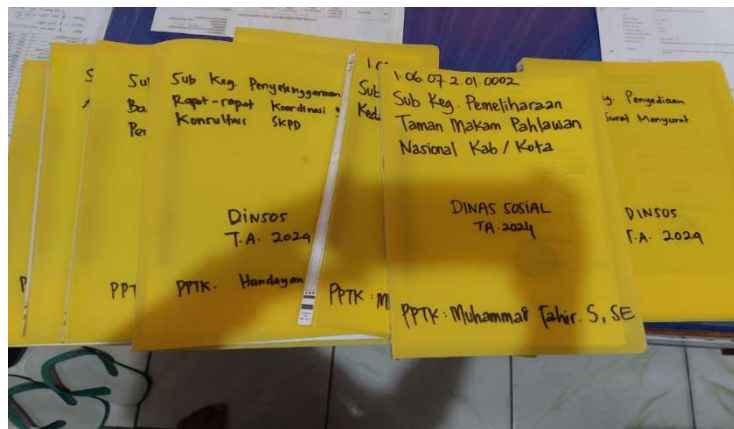 Sub Keg. Penyelenggaraan
Rapat-rapat Koordinasi
Konsultasi SKPD
DINSOS
T.A. 2024
PPTK. Handayan
Sub
Ked
PPTK : M
1.06.07.2.01.0002
Sub Keg. Pemeliharaan
Taman Makam Pahlawan
Nasional Kab / Kota
DINAS SOSIAL
TA. 2024
PPTK : Muhammad Tahir. S, SE
g. Penyediaan
Surat Menyurat
DINSOS
T.A. 2024
S
Sul
Ba
Per
PPT